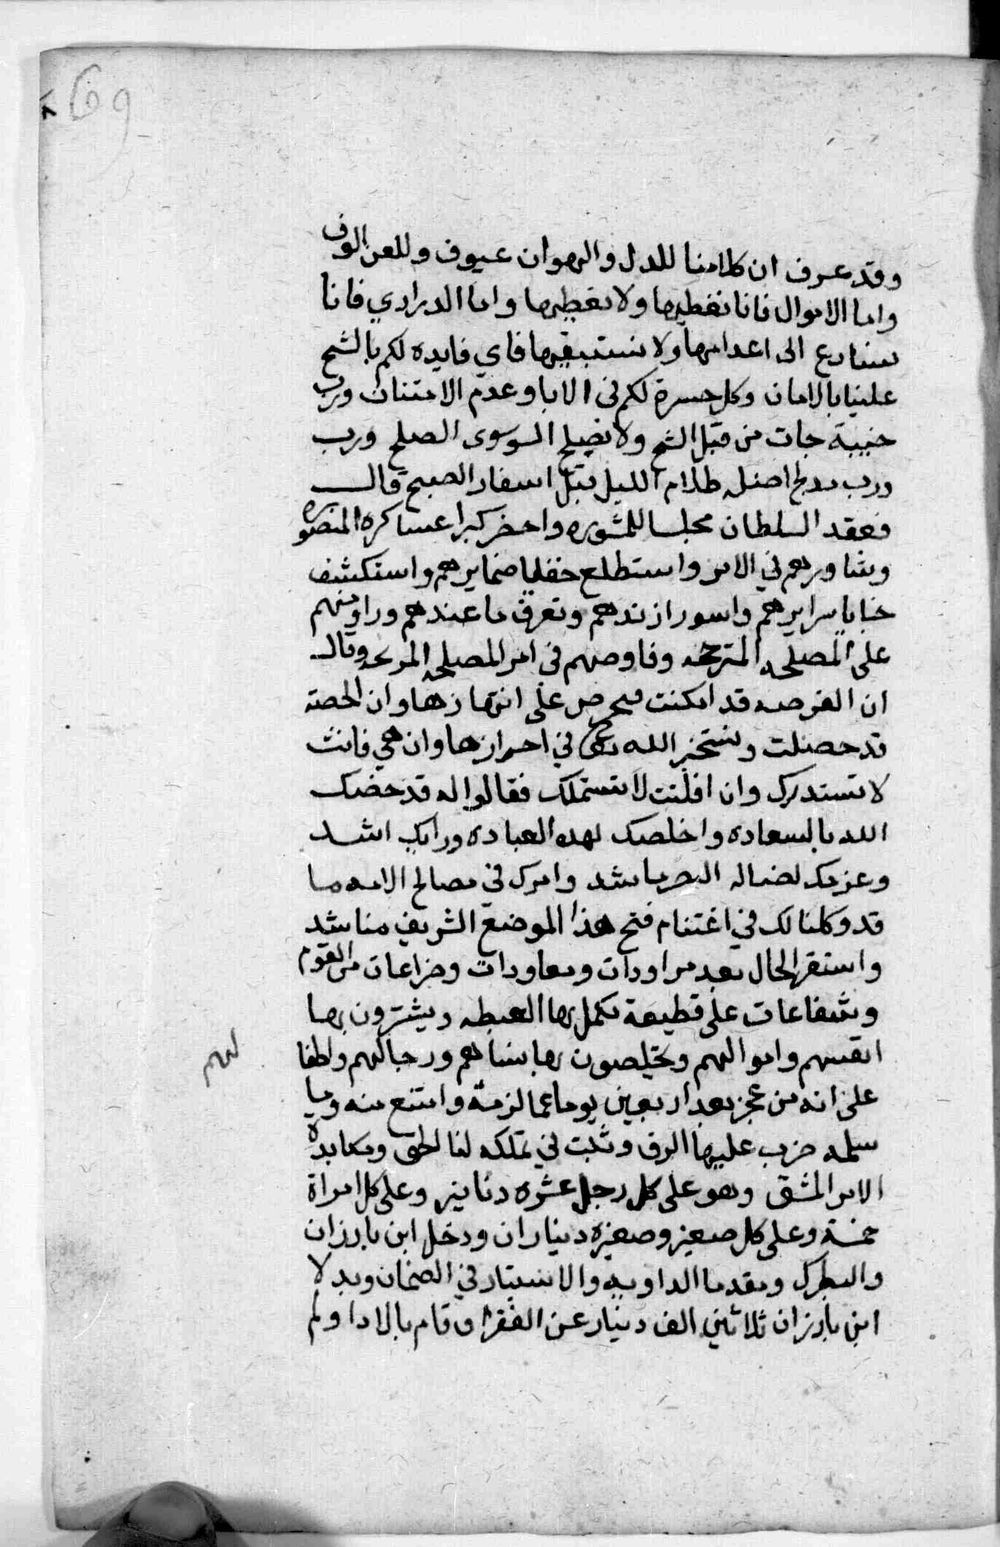 69
وقد عرف ان كلامنا للدل والهوان عيوف وللعن الوف
واما الاموال فانا نغطيها ولا نعطيها واما الدراري فانا
نسارع الى اعدامها ولا نستبقيها فاي فايده لكم بالشح
علينا بالامان وكل حسرة لكم في الابا وعدم الامتنان ورب
خيبة جات من قبل الشح ولا يصلح السوى الصلح ورب
ورب مدلج اضله ظلام الليل قبل اسفار الصبح قال
فعقد السلطان مجلسا للمشوره واحضر كبرا عساكره المنصوره
وشاورهم في الامر واستطلع خفايا ضمايرهم واستكشف
خبايا سرايرهم واسورا زندهم وتعرف ما عندهم وراوضهم
على المصلحه المترجحه وفاوضهم في امر المصلحه المربحه وقال
ان الفرصه قد امكنت فيحرص على انتهازها وان الحصة
قد حصلت ونستخير الله تعالى في احرازها وان هي فاتت
لا تستدرك وان افلتت لا تستملك فقالوا له قد خصك
الله بالسعاده واخلصك لهده العباده ورايك اشد
وعزمك لضاله النصر ناشد وامرك في مصالح الامه ما
قد وكلنا لك في اغتنام فتح هذا الموضع الشريف مناشد
واستقر الحال بعد مراودات ومعاودات وضراعات من القوم
وشفاعات على قطيعة تكمل بها الغبطه ويشترون بها
انفسهم واموالهم ويخلصون بها نساهم ورجالهم واطفا
لهم
على انه من عجز بعد اربعين يوما عما لزمه وامتنع منه وما
سلمه ضرب عليه الرق وثبت في تملكه لنا الحق ومكابدة
الامر المشق وهو على كل رجل عشره دنانير وعلى كل امراة
خمسة وعلى كل صغير وصغيره ديناران ودخل ابن بارزان
والبطرك ومقدما الداويه والاسبتار في الضمان وبدلا
ابن بارزان ثلاثين الف دينار عن الفقرا وقام بالادا ولم